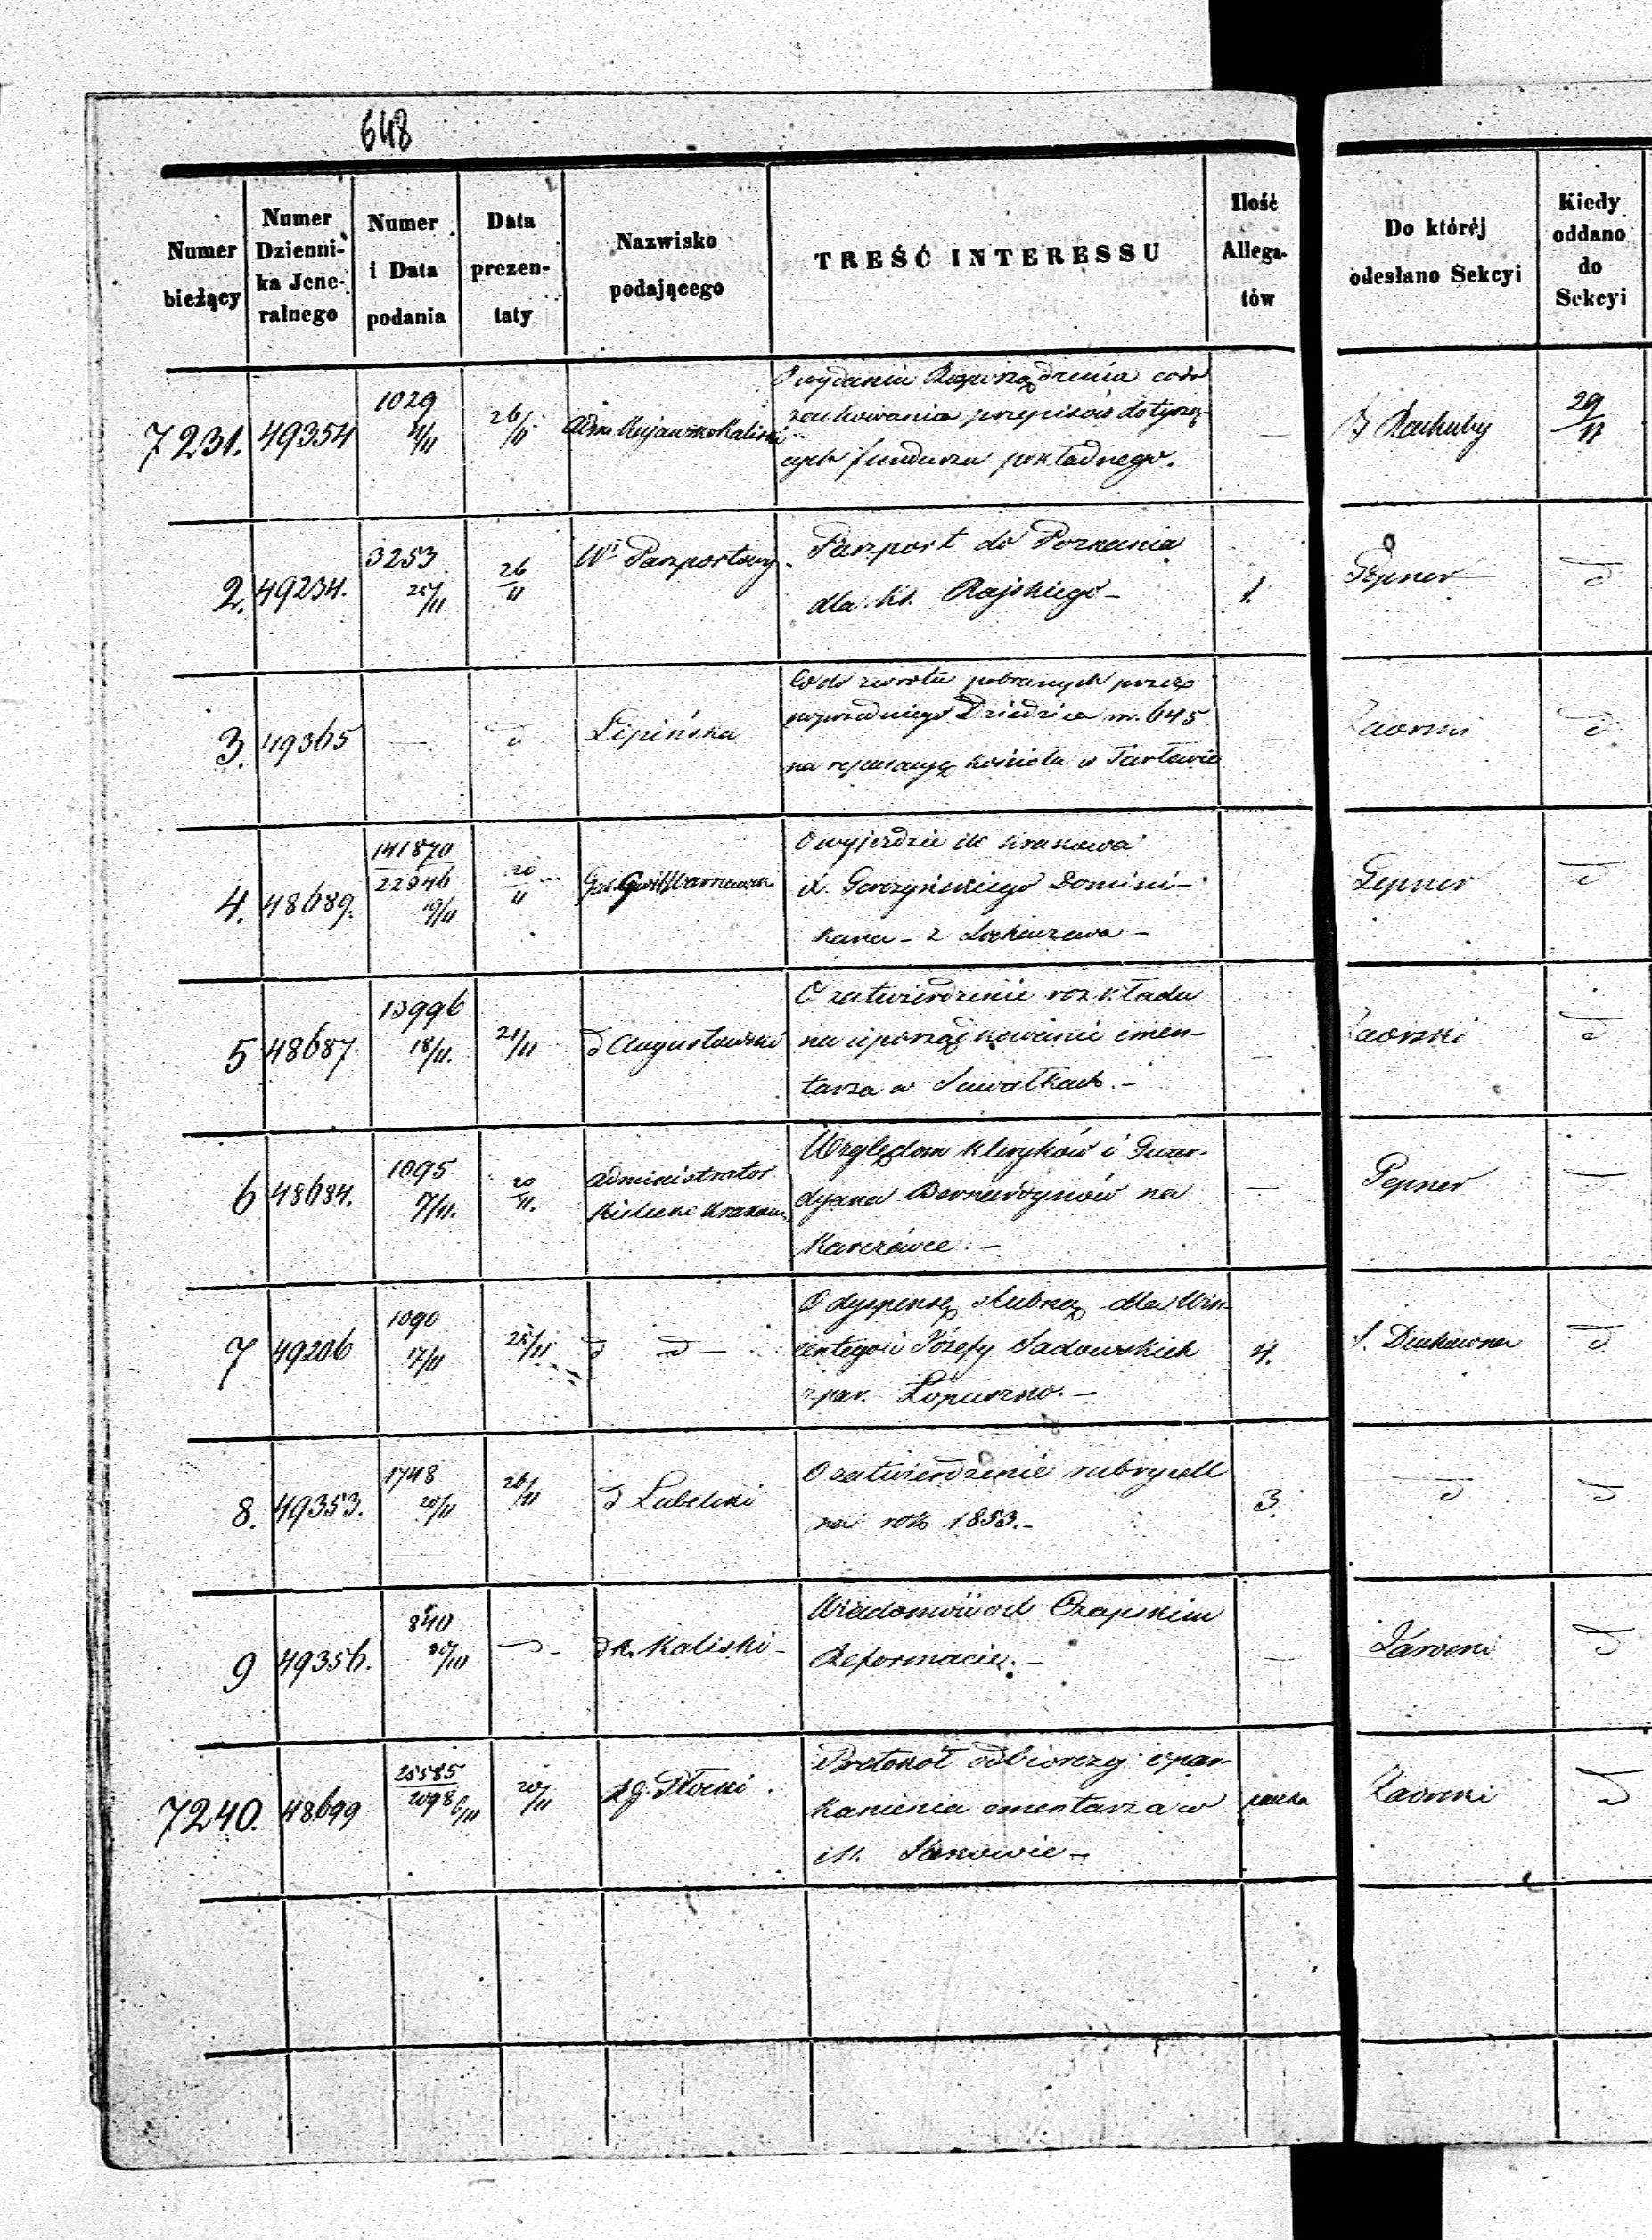 648
Numer bieżący
Numer Dzienni-ka Jene-ralnego
Numer i Data podania
Data prezen-taty
Nazwisko podającego
TREŚĆ INTERESSU
Ilość Allega-tów
Do któréj odesłano Sekcyi
Kiedy oddano do Sekcyi
7231. 49354 1029 26/11 Adm. Kujawsko Kaliski
O wydanie Rozporządzenia co do
zachowania przepisów dotyczą-
cych funduszu pokładnego.
— Rachuby 29/11
2. 49234. 3253 25/11 26/11 Wł Paszportowy.
Paszport do Poznania
dla Ks. Rajskiego —
1. Pepner d
3. 49365 — d Lipińska
Co do zwrotu pobranych przez
poprzedniego Dziedzica rs. 645
na reparacyę kościoła w Tarłowie
— Zaorski d
4. 48689. 141870 22946 19/11 20/11 Gub. Warszawski
O wyjeździe do Krakowa
X. Gorczyńskiego Domini-
kana — z Sochaczewa —
Pepner d
5 48687 13996 18/11. 21/11 d Augustowski
O zatwierdzenie rozkładu
na uporządkowanie cmen-
tarza w Suwałkach. —
— Zaorski d
6 48684. 1095 17/11. 20/11. Administrator
Kielecko Krakow.
Względem kleryków i Gwar-
dyana Bernardynów na
Karczówce. —
— Pepner —
7 49206 1090 17/11 25/11 d d —
O dyspensę ślubną dla Win-
centego i Józefy Sadowskich
z par. Łopuszno. —
4. S. Duchowna d
8. 49353. 1748 20/11 26/11 d Lubelski
O zatwierdzenie rubrycell
na rok 1853. —
3. d d
9 49356. 840 d — d K. Kaliski —
Wiadomość o X Czapskim
Reformacie. —
— d
7240. 48699 25585 2098 6/11 20/11 Rz. G. Płocki.
Protokół odbiorczy opar-
kanienia cmentarza w
M. Janowie —
paczka Zaorski d